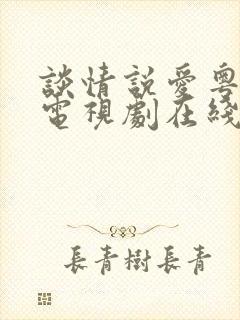 談情説愛粵
電視劇在綫
長青樹長青